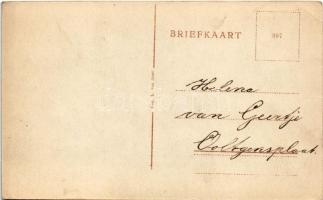 BRIEFKAART
Helena
van Geertje
Ooltgensplaat.